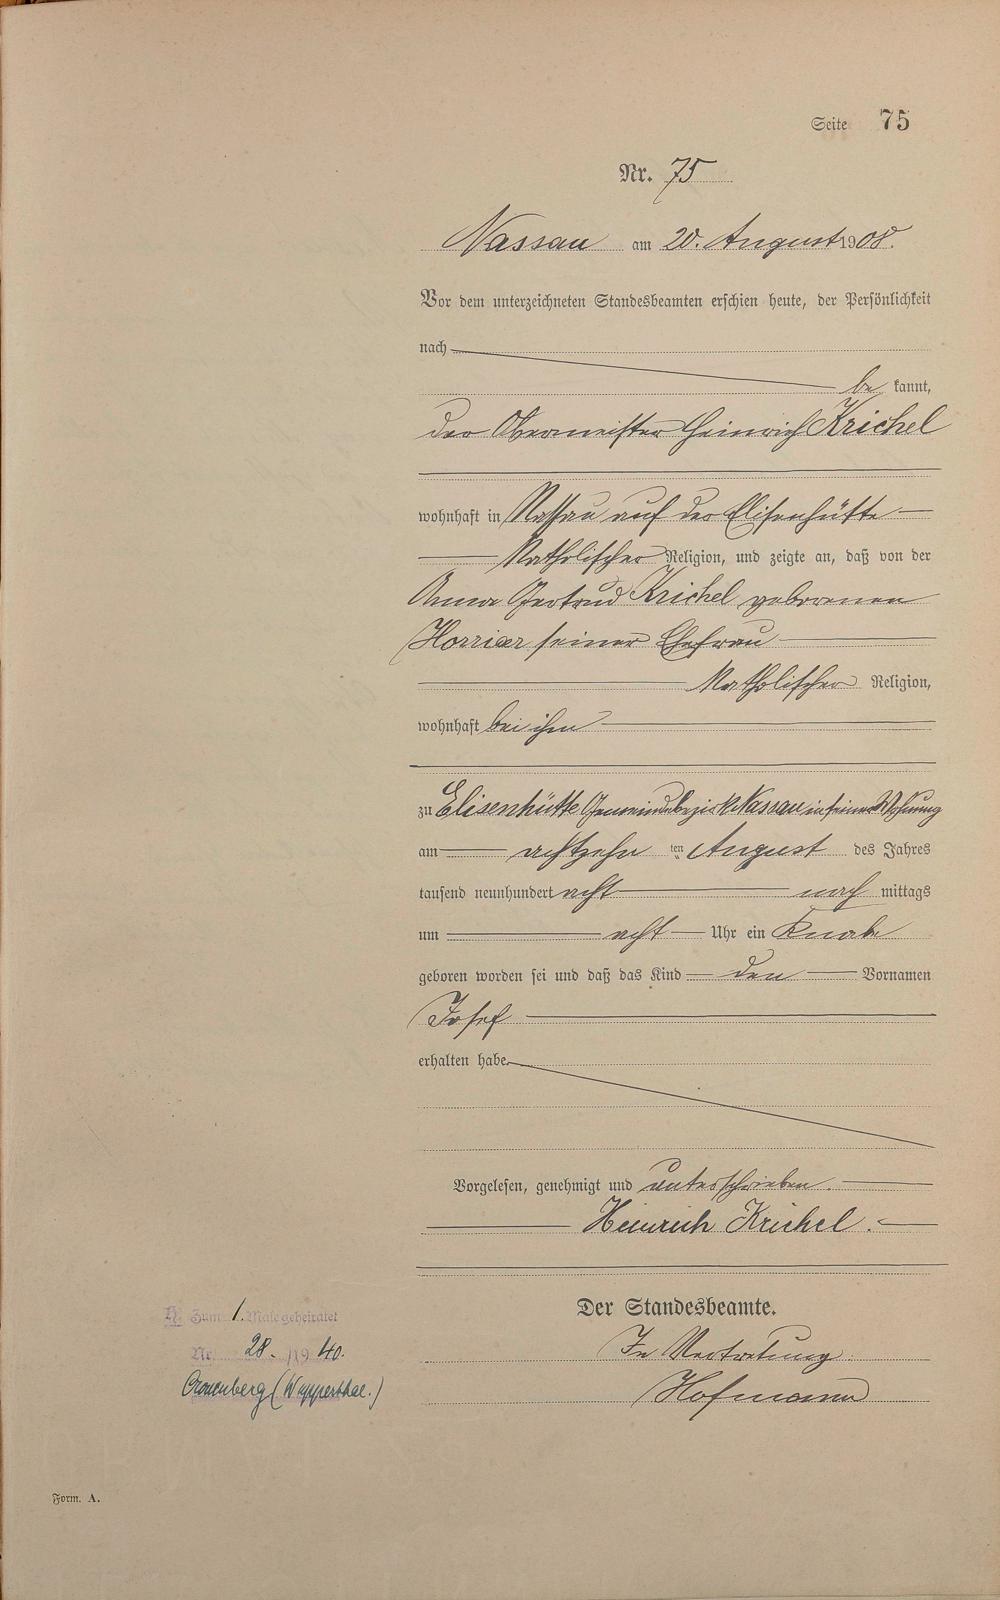 Seite 75
Nr. 75
Nassau am 20. August 1908.
Vor dem unterzeichneten Standesbeamten erschien heute, der Persönlichkeit
nach
be kannt,
der Obermeister Heinrich Krichel
wohnhaft in Nassau auf der Elisenhütte
Katholischer Religion, und zeigte an, daß von der
Anna Gertrud Krichel geborenen
Horrixer seiner Ehefrau
Katholischer Religion,
wohnhaft bei ihm
zu Elisenhütte Gemeindebezirk Nassau in seiner Wohnung
am achtzehn ten August des Jahres
tausend neunhundert acht nach mittags
um acht Uhr ein Knabe
geboren worden sei und daß das Kind den Vornamen
Josef
erhalten habe.
Vorgelesen, genehmigt und unterschrieben.
Heinrich Krichel.
Der Standesbeamte.
In Vertretung:
Hofmann
H. Zum 1. Male geheiratet
Nr. 28. /1940.
Cronenberg (Wupperthal.)
Form. A.